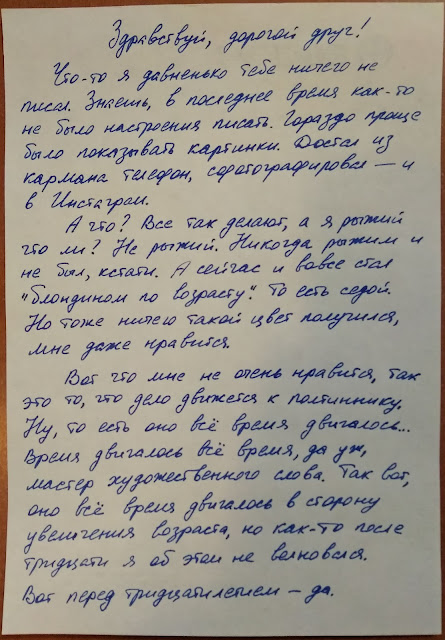 Здравствуй, дорогой друг!
Что-то я давненько тебе ничего не
писал. Знаешь, в последнее время как-то
не было настроения писать. Гораздо проще
было показывать картинки. Достал из
кармана телефон, сфотографировал — и
в Инстаграм.
А что? Все так делают, а я рыжий
что ли? Не рыжий. Никогда рыжим и
не был, кстати. А сейчас и вовсе стал
"блондином по возрасту". То есть седой.
Но тоже ничего такой цвет получился,
мне даже нравится.
Вот что мне не очень нравится, так
это то, что дело движется к полтиннику.
Ну, то есть оно всё время двигалось...
Время двигалось всё время, да уж,
мастер художественного слова. Так вот,
оно всё время двигалось в сторону
увеличения возраста, но как-то после
тридцати я об этом не волновался.
Вот перед тридцатилетием — да.